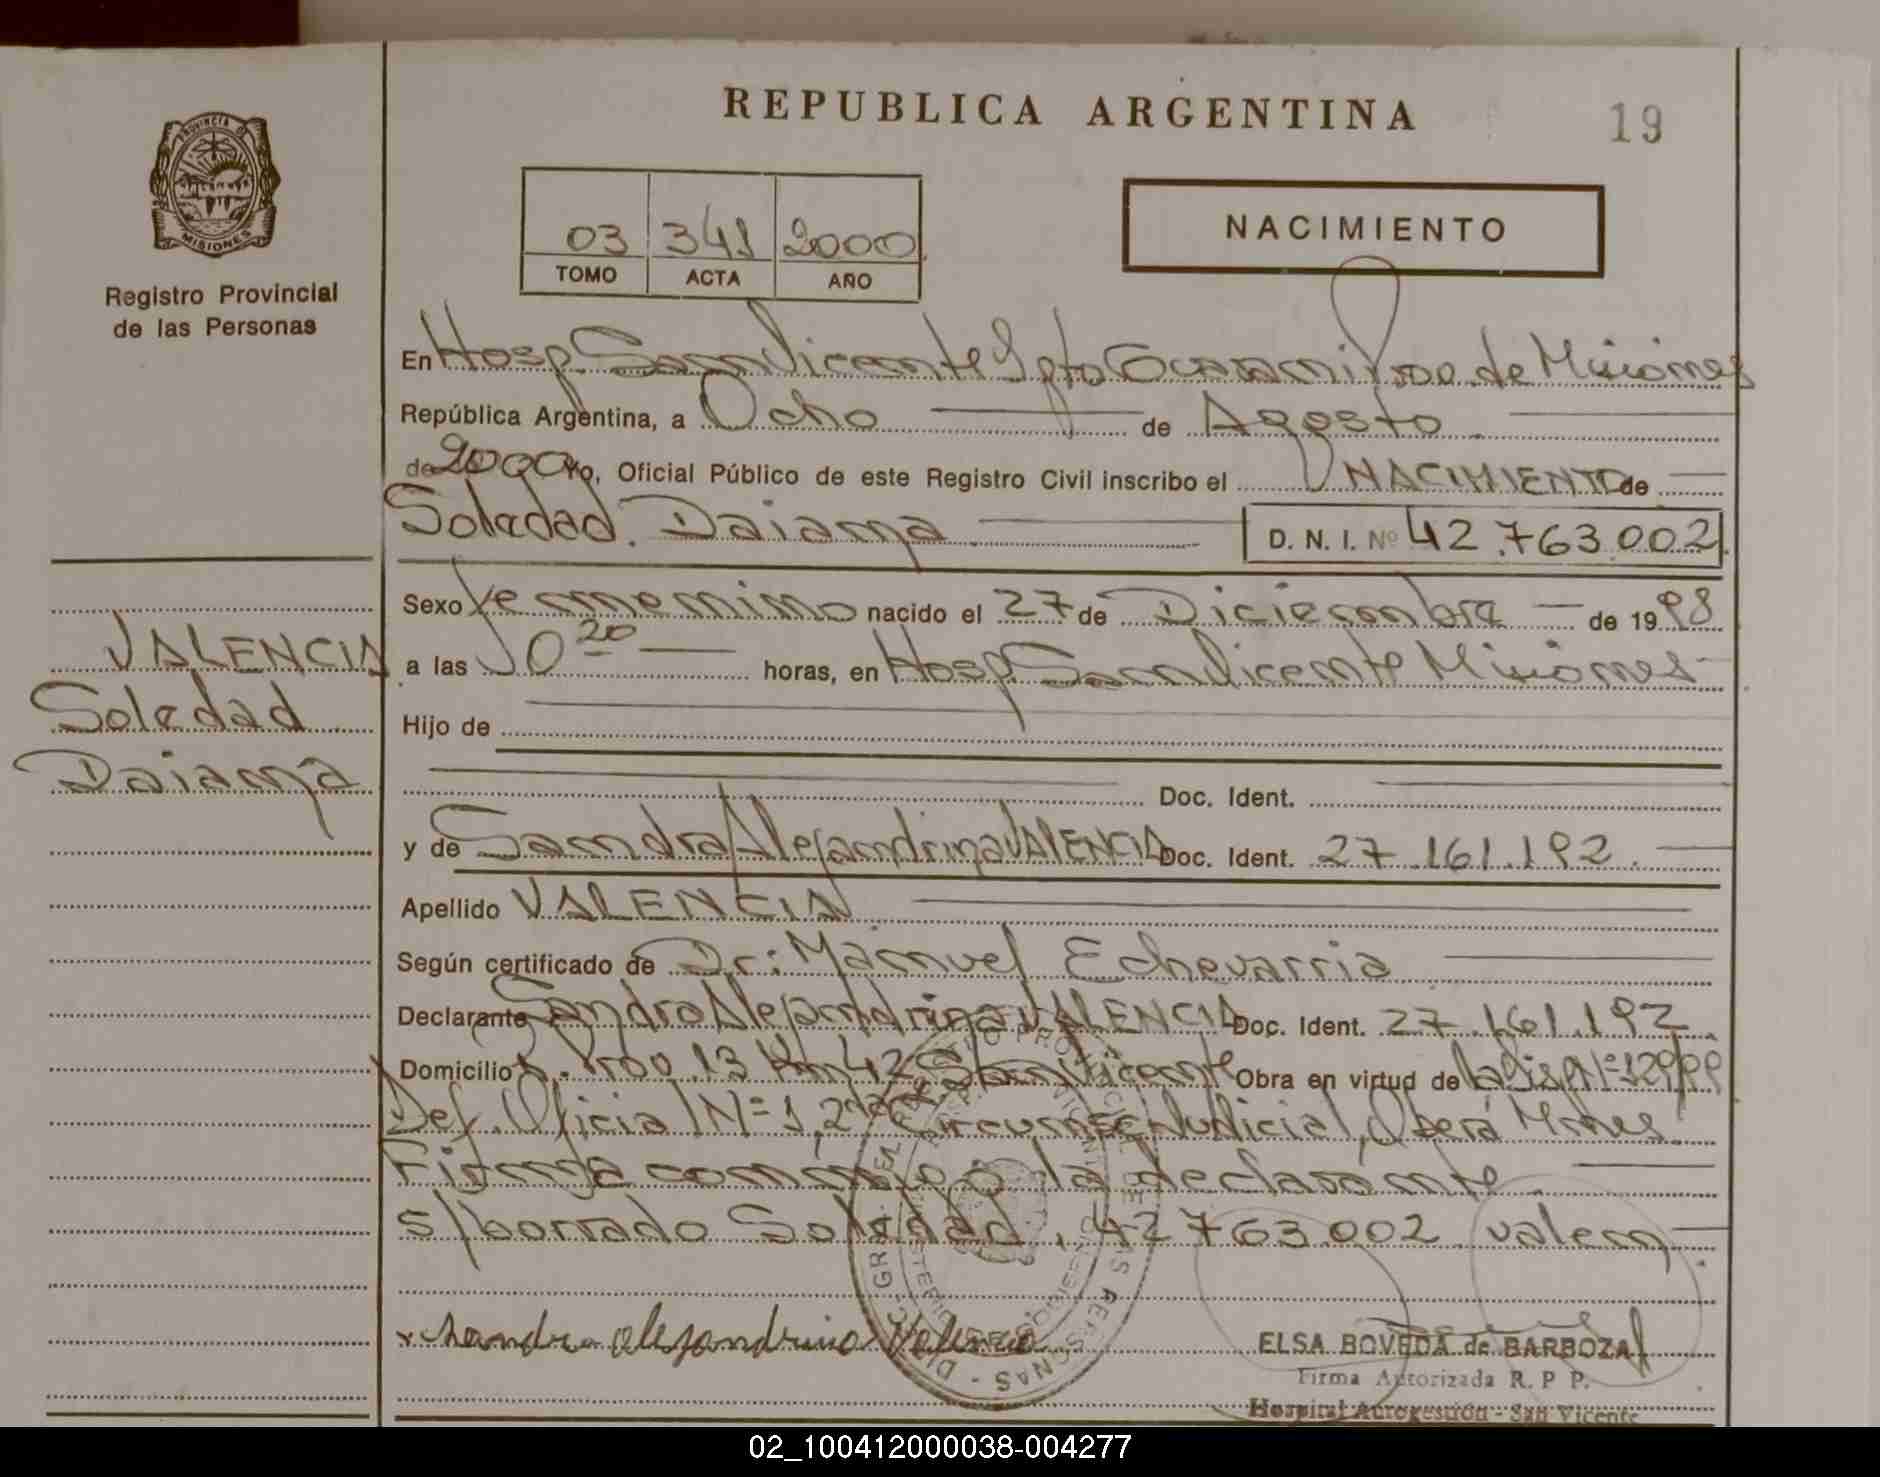 REPUBLICA ARGENTINA
19
PROVINCIA DE
MISIONES
Registro Provincial
de las Personas
03 341 2000
TOMO ACTA AÑO
NACIMIENTO
En Hosp. San Vicente Dpto Guarani Pcia. de Misiones
República Argentina, a Ocho de Agosto
de 2000 Yo, Oficial Público de este Registro Civil inscribo el NACIMIENTO de
Soledad Daiana D. N. I. Nº 42.763.002
Sexo Femenino nacido el 27 de Diciembre de 1998
a las 10 20 horas, en Hosp San Vicente Misiones
Hijo de
Doc. Ident.
y de Sandra Alejandrina VALENCIA Doc. Ident. 27.161.192
Apellido VALENCIA
Según certificado de Dr: Manuel Echevarria
Declarante Sandra Alejandrina VALENCIA Doc. Ident. 27.161.192
Domicilio 13 Km 42 San Vicente Obra en virtud de la Disp Nº 129/99
Def. Oficial Nº 1, 2da Circunsc. Judicial, Oberá Mnes.
Firma conmigo la declarante
s/borrado Soledad, 42763.002 valen
VALENCIA
Soledad
Daiana
Sandra alejandrina Valencia
ELSA BOVEDA de BARBOZA
Firma Autorizada R. P P.
Hospital Autogestión - San Vicente
02_100412000038-004277